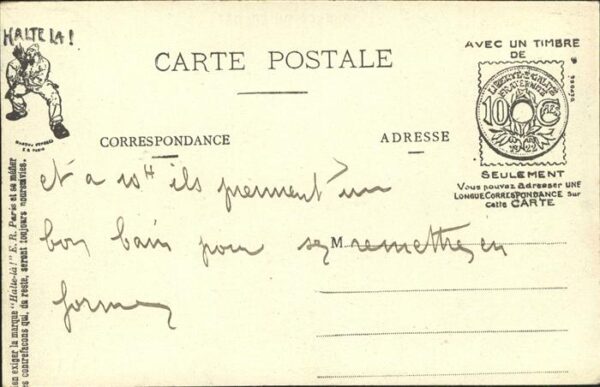 HALTE LÀ!
CARTE POSTALE
AVEC UN TIMBRE
DE
LIBERTÉ-ÉGALITÉ
FRATERNITÉ
10 CES
1922
SEULEMENT
Vous pouvez adresser UNE
LONGUE CORRESPONDANCE sur
cette CARTE
CORRESPONDANCE
ADRESSE
M
et a 10H ils prennent un
bon bain pour se remettre en
forme
en exiger la marque "Halte-là!" E. R. Paris et se méfier
es contrefaçons qui, du reste, seront toujours poursuivies.